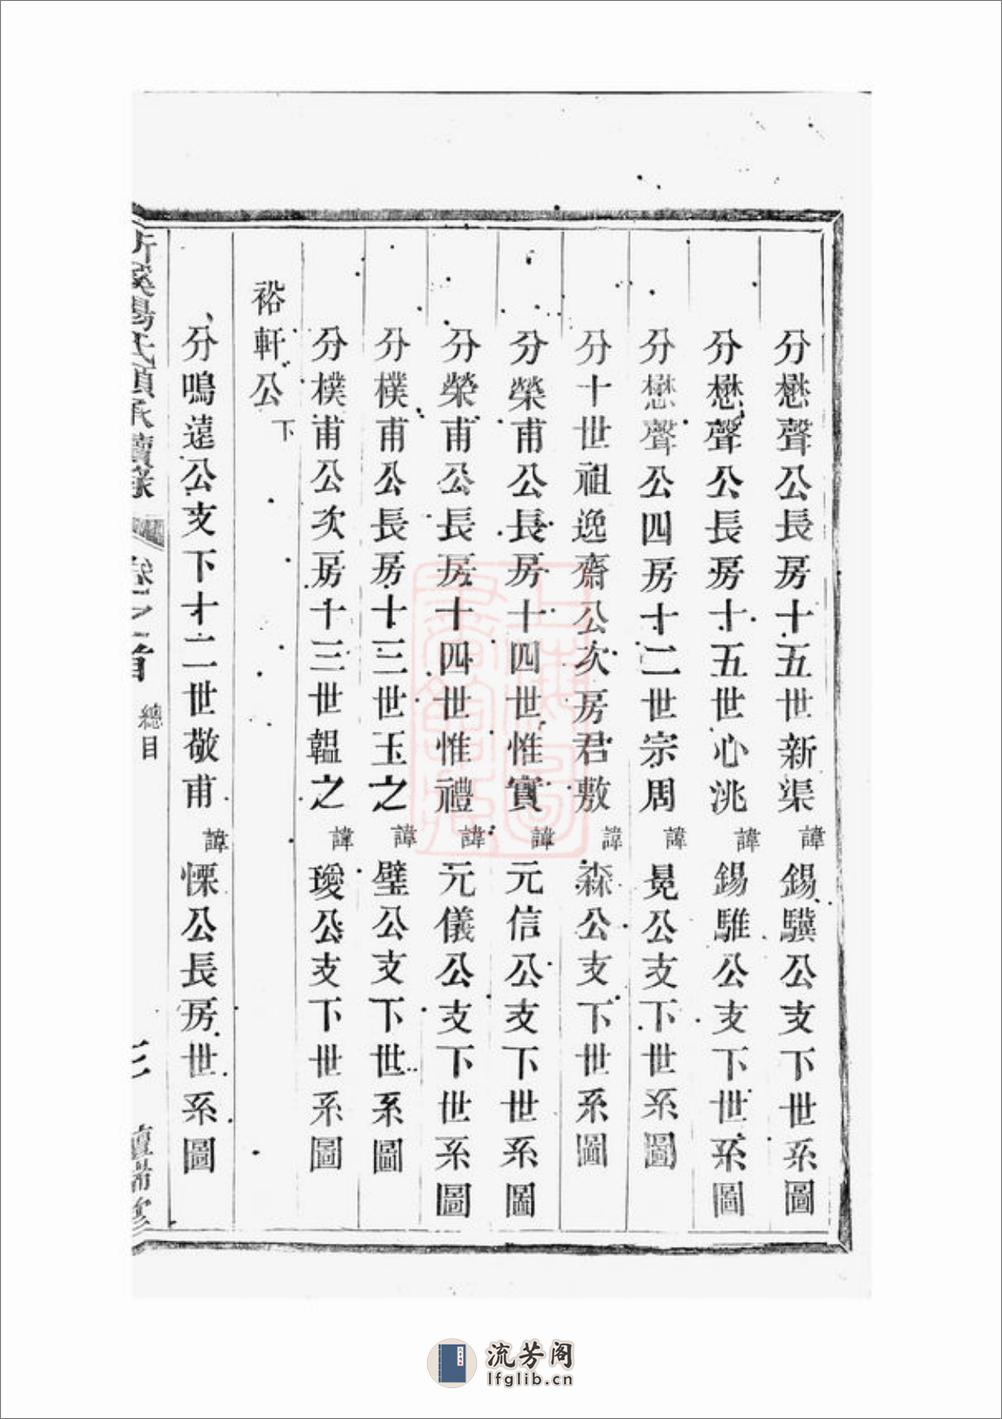 分懋聲公長房十五世新渠諱錫驥公支下世系圖
分懋聲公長房十五世心洮諱錫騅公支下世系圖
分懋聲公四房十二世宗周諱晃公支下世系圖
分十世祖逸齋公次房君敷諱森公支下世系圖
分榮甫公長房十四世惟實諱元信公支下世系圖
分榮甫公長房十四世惟禮諱元儀公支下世系圖
分樸甫公長房十三世玉之諱璧公支下世系圖
分樸甫公次房十三世韞之諱璦公支下世系圖
裕軒公下
分鳴遠公支下十二世敬甫諱慄公長房世系圖
卷之首 總目
流芳阁
lfglib.cn